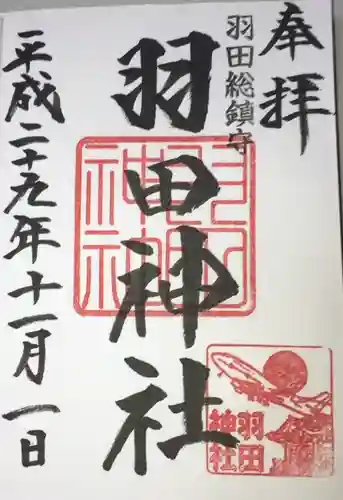 奉拝
羽田総鎮守
羽田神社
平成二十九年十一月一日
羽田
神社
羽田
神社